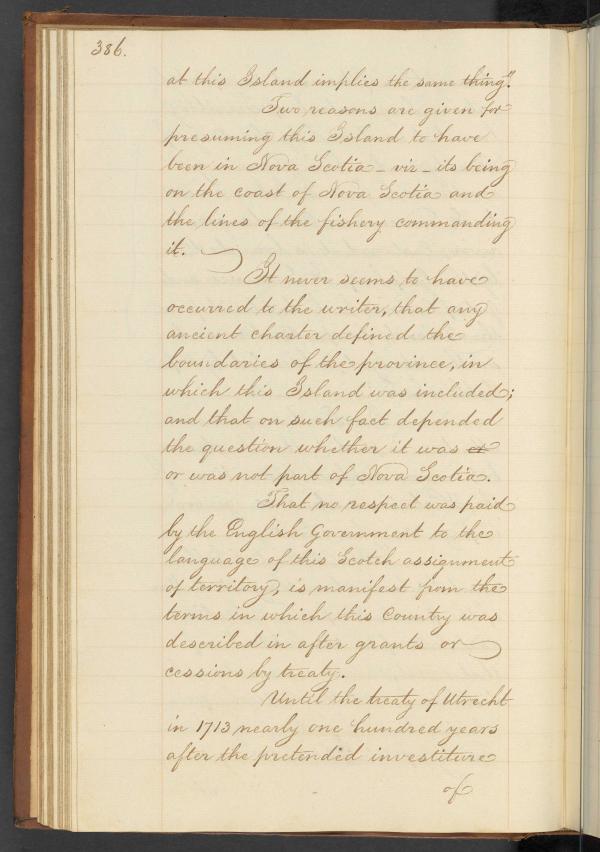 386.
at this Island implies the same thing".
Two reasons are given for
presuming this Island to have
been in Nova Scotia - viz - its being
on the coast of Nova Scotia and
the lines of the fishery commanding
it.
It never seems to have
occurred to the writer, that any
ancient charter defined the
boundaries of the province, in
which this Island was included;
and that on such fact depended
the question whether it was or
or was not part of Nova Scotia.
That no respect was paid
by the English Government to the
language of this Scotch assignment
of territory, is manifest from the
terms in which this Country was
described in after grants or
cessions by treaty.
Until the treaty of Utrecht
in 1713 nearly one hundred years
after the pretended investiture
of